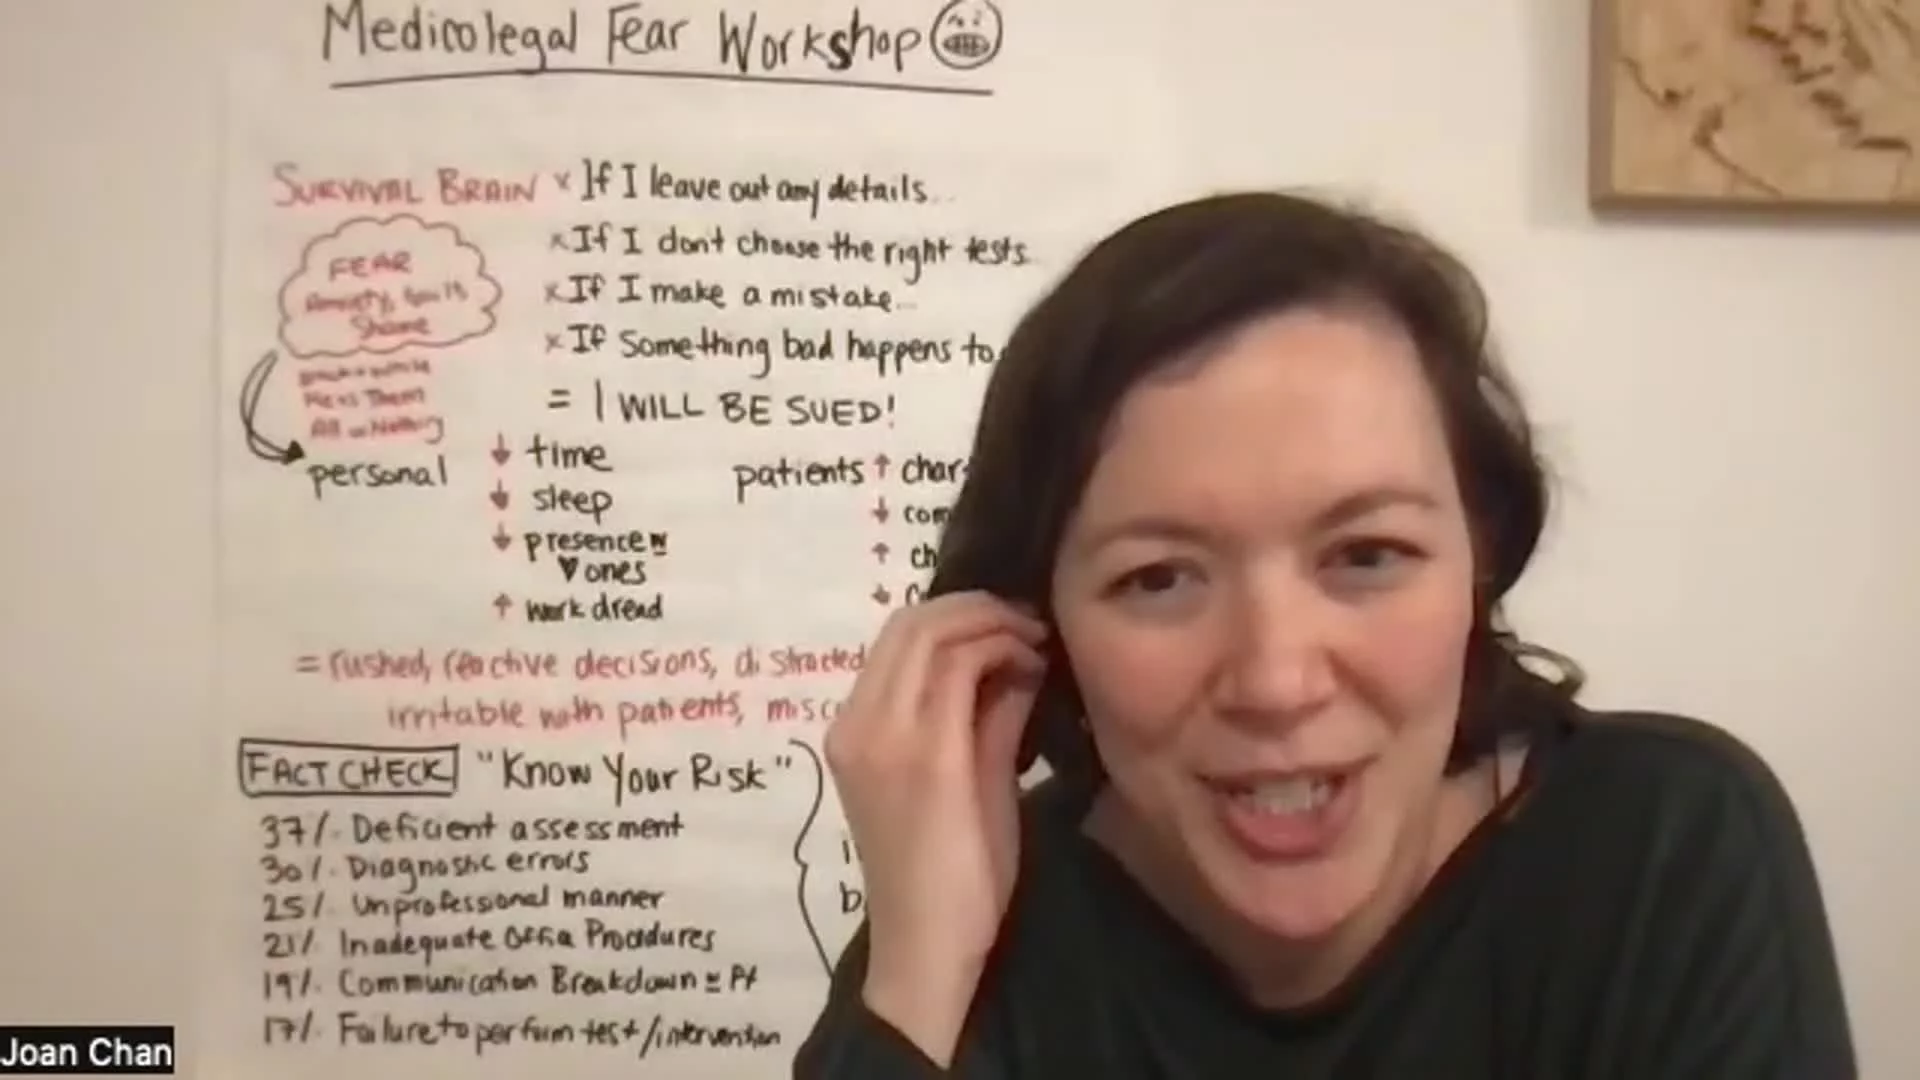 Medicolegal Fear Workshop
SURVIVAL BRAIN x If I leave out any details...
x If I don't choose the right tests
x If I make a mistake...
x If Something bad happens to
= I WILL BE SUED!
FEAR
Anxiety, Guilt
Shame
Me vs Them
All or Nothing
personal
↓ time
↓ sleep
↓ presence w
♥ ones
↑ work dread
patients ↑ char
↓ com
↑ ch
↓
= rushed, reactive decisions, distracted
irritable with patients, misc
FACT CHECK "Know Your Risk"
37% Deficient assessment
30% Diagnostic errors
25% Unprofessional manner
21% Inadequate Office Procedures
19% Communication Breakdown w Pt
17% Failure to perform test/intervention
Joan Chan